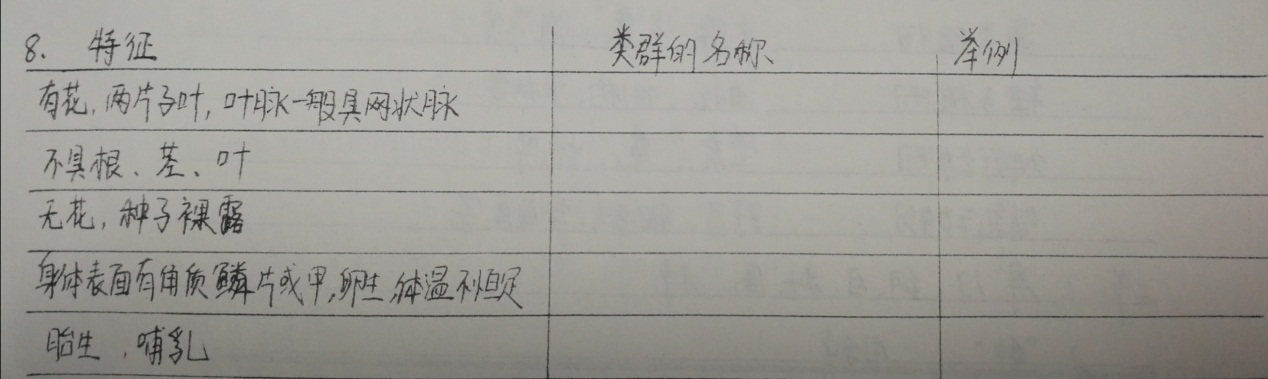 8. 特征 类群的名称 举例
有花,两片子叶,叶脉一般具网状脉
不具根、茎、叶
无花,种子裸露
身体表面有角质鳞片或甲,卵生,体温不恒定
胎生,哺乳